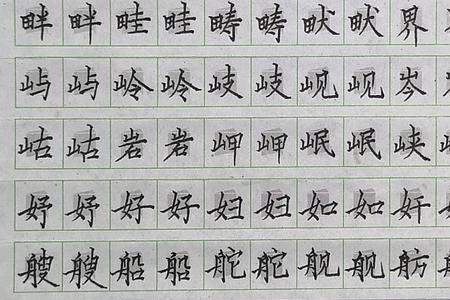 畔畔畦畦畴畴畎畎界
屿屿岭岭岐岐岘岘岑
岵岵岩岩岬岬岷岷峡
妤妤好好妇妇如如奸
艘艘船船舵舵舰舰舫